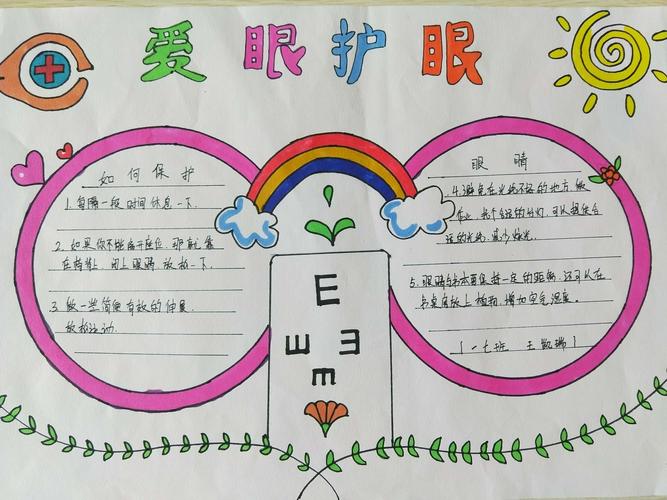 爱眼护眼
如何保护
1.每隔一段时间休息一下
2.如果你不能离开座位,那就靠
在椅背上,闭上眼睛放松一下。
3.做一些简便有效的伸展
放松运动.
眼睛
4.避免在光线不好的地方做
作业,找个合适的台灯,可以提供合
适的光线,减少炫光.
5.眼睛与书本要保持一定的距离,还可以在
书桌旁放上植物,增加空气湿度。
一七班 王凯瑞
E
E
E
E